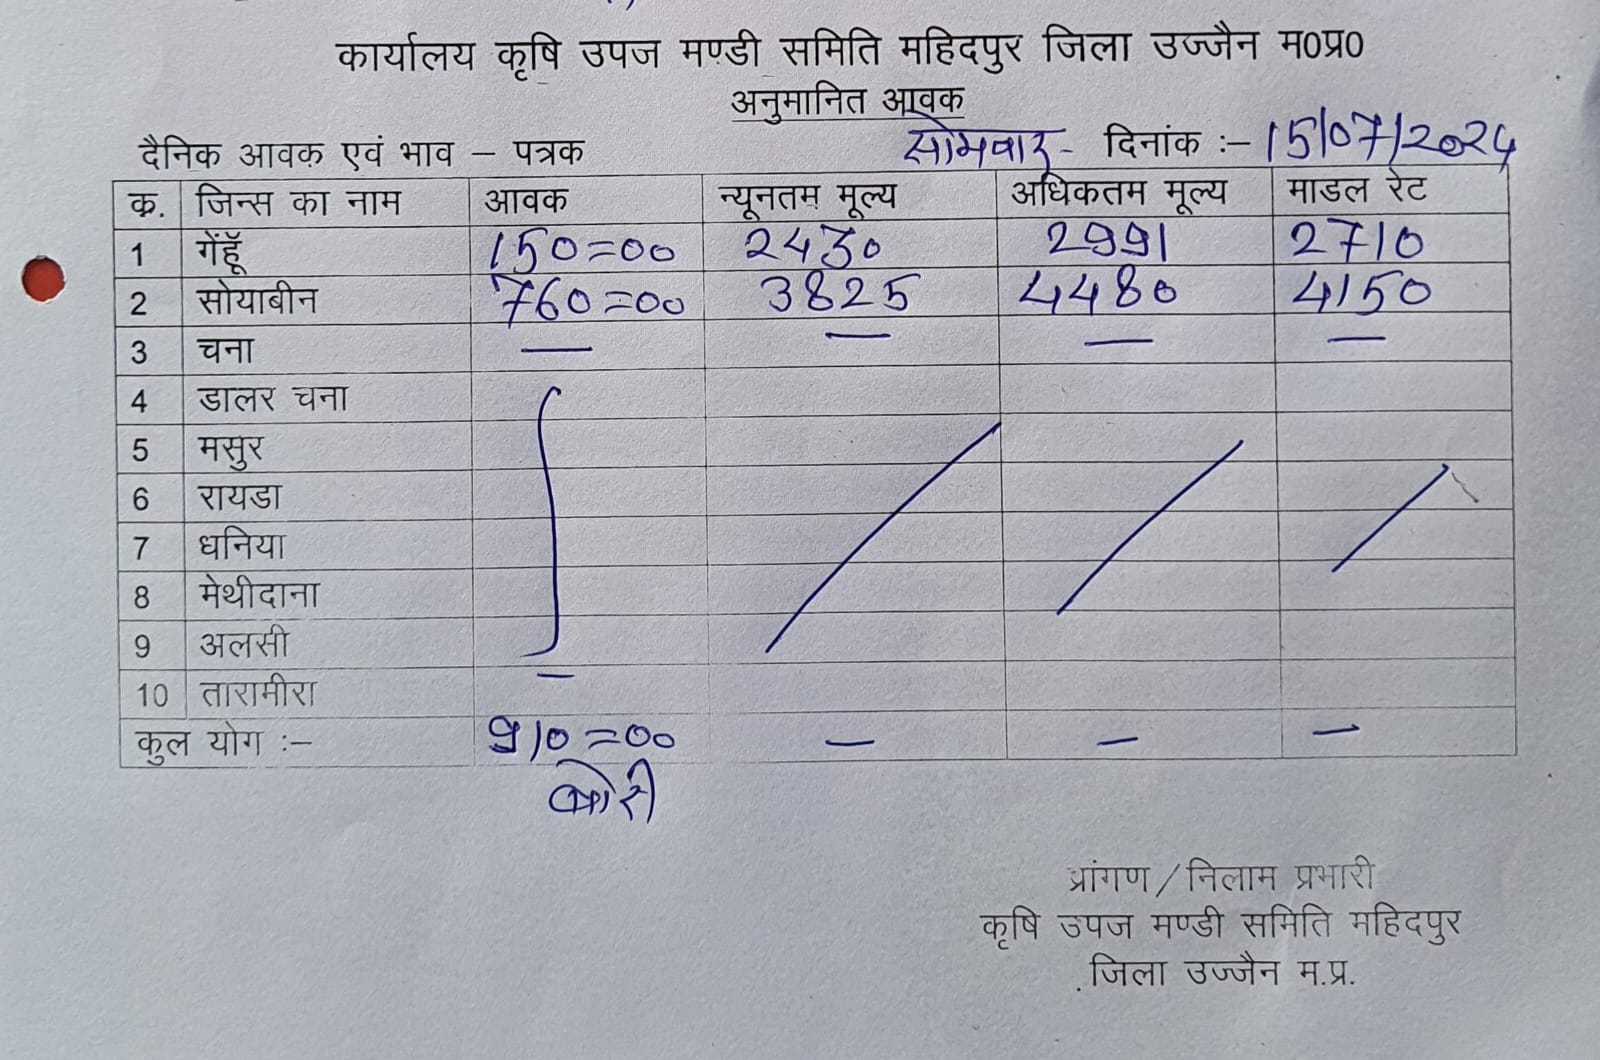 कार्यालय कृषि उपज मण्डी समिति महिदपुर जिला उज्जैन म0प्र0
अनुमानित आवक
दैनिक आवक एवं भाव – पत्रक सोमवार - दिनांक :– 15/07/2024
क्र. जिन्स का नाम आवक न्यूनतम मूल्य अधिकतम मूल्य माडल रेट
1 गेंहूॅ 150=00 2430 2991 2710
2 सोयाबीन 760=00 3825 4480 4150
3 चना — — — —
4 डालर चना
5 मसुर
6 रायडा
7 धनिया
8 मेथीदाना
9 अलसी
10 तारामीरा —
कुल योग :– 910=00 — — —
बोरी
प्रांगण / निलाम प्रभारी
कृषि उपज मण्डी समिति महिदपुर
जिला उज्जैन म.प्र.